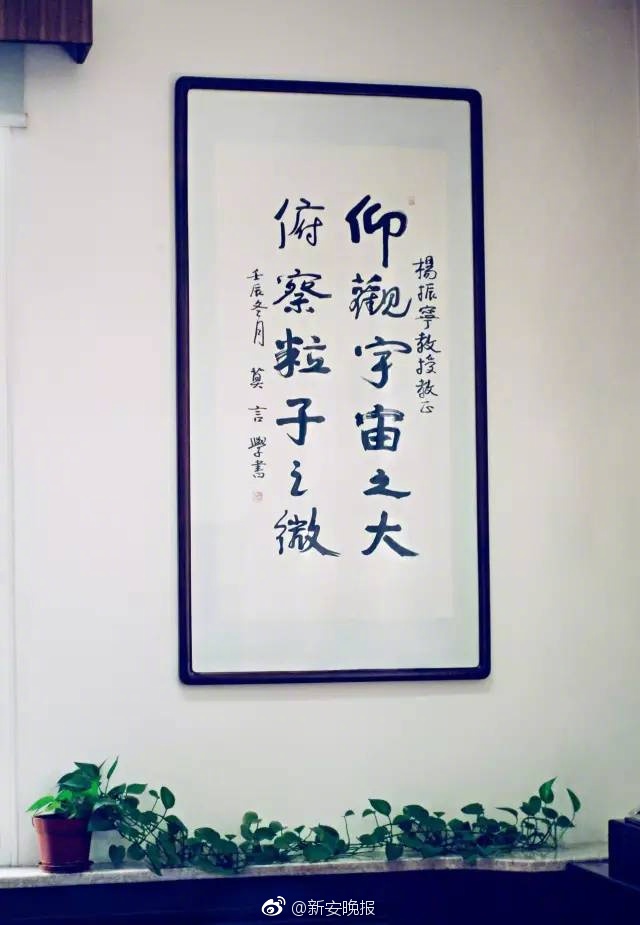 楊振寧教授教正
仰觀宇宙之大
俯察粒子之微
壬辰冬月 莫言 學書
@新安晚报